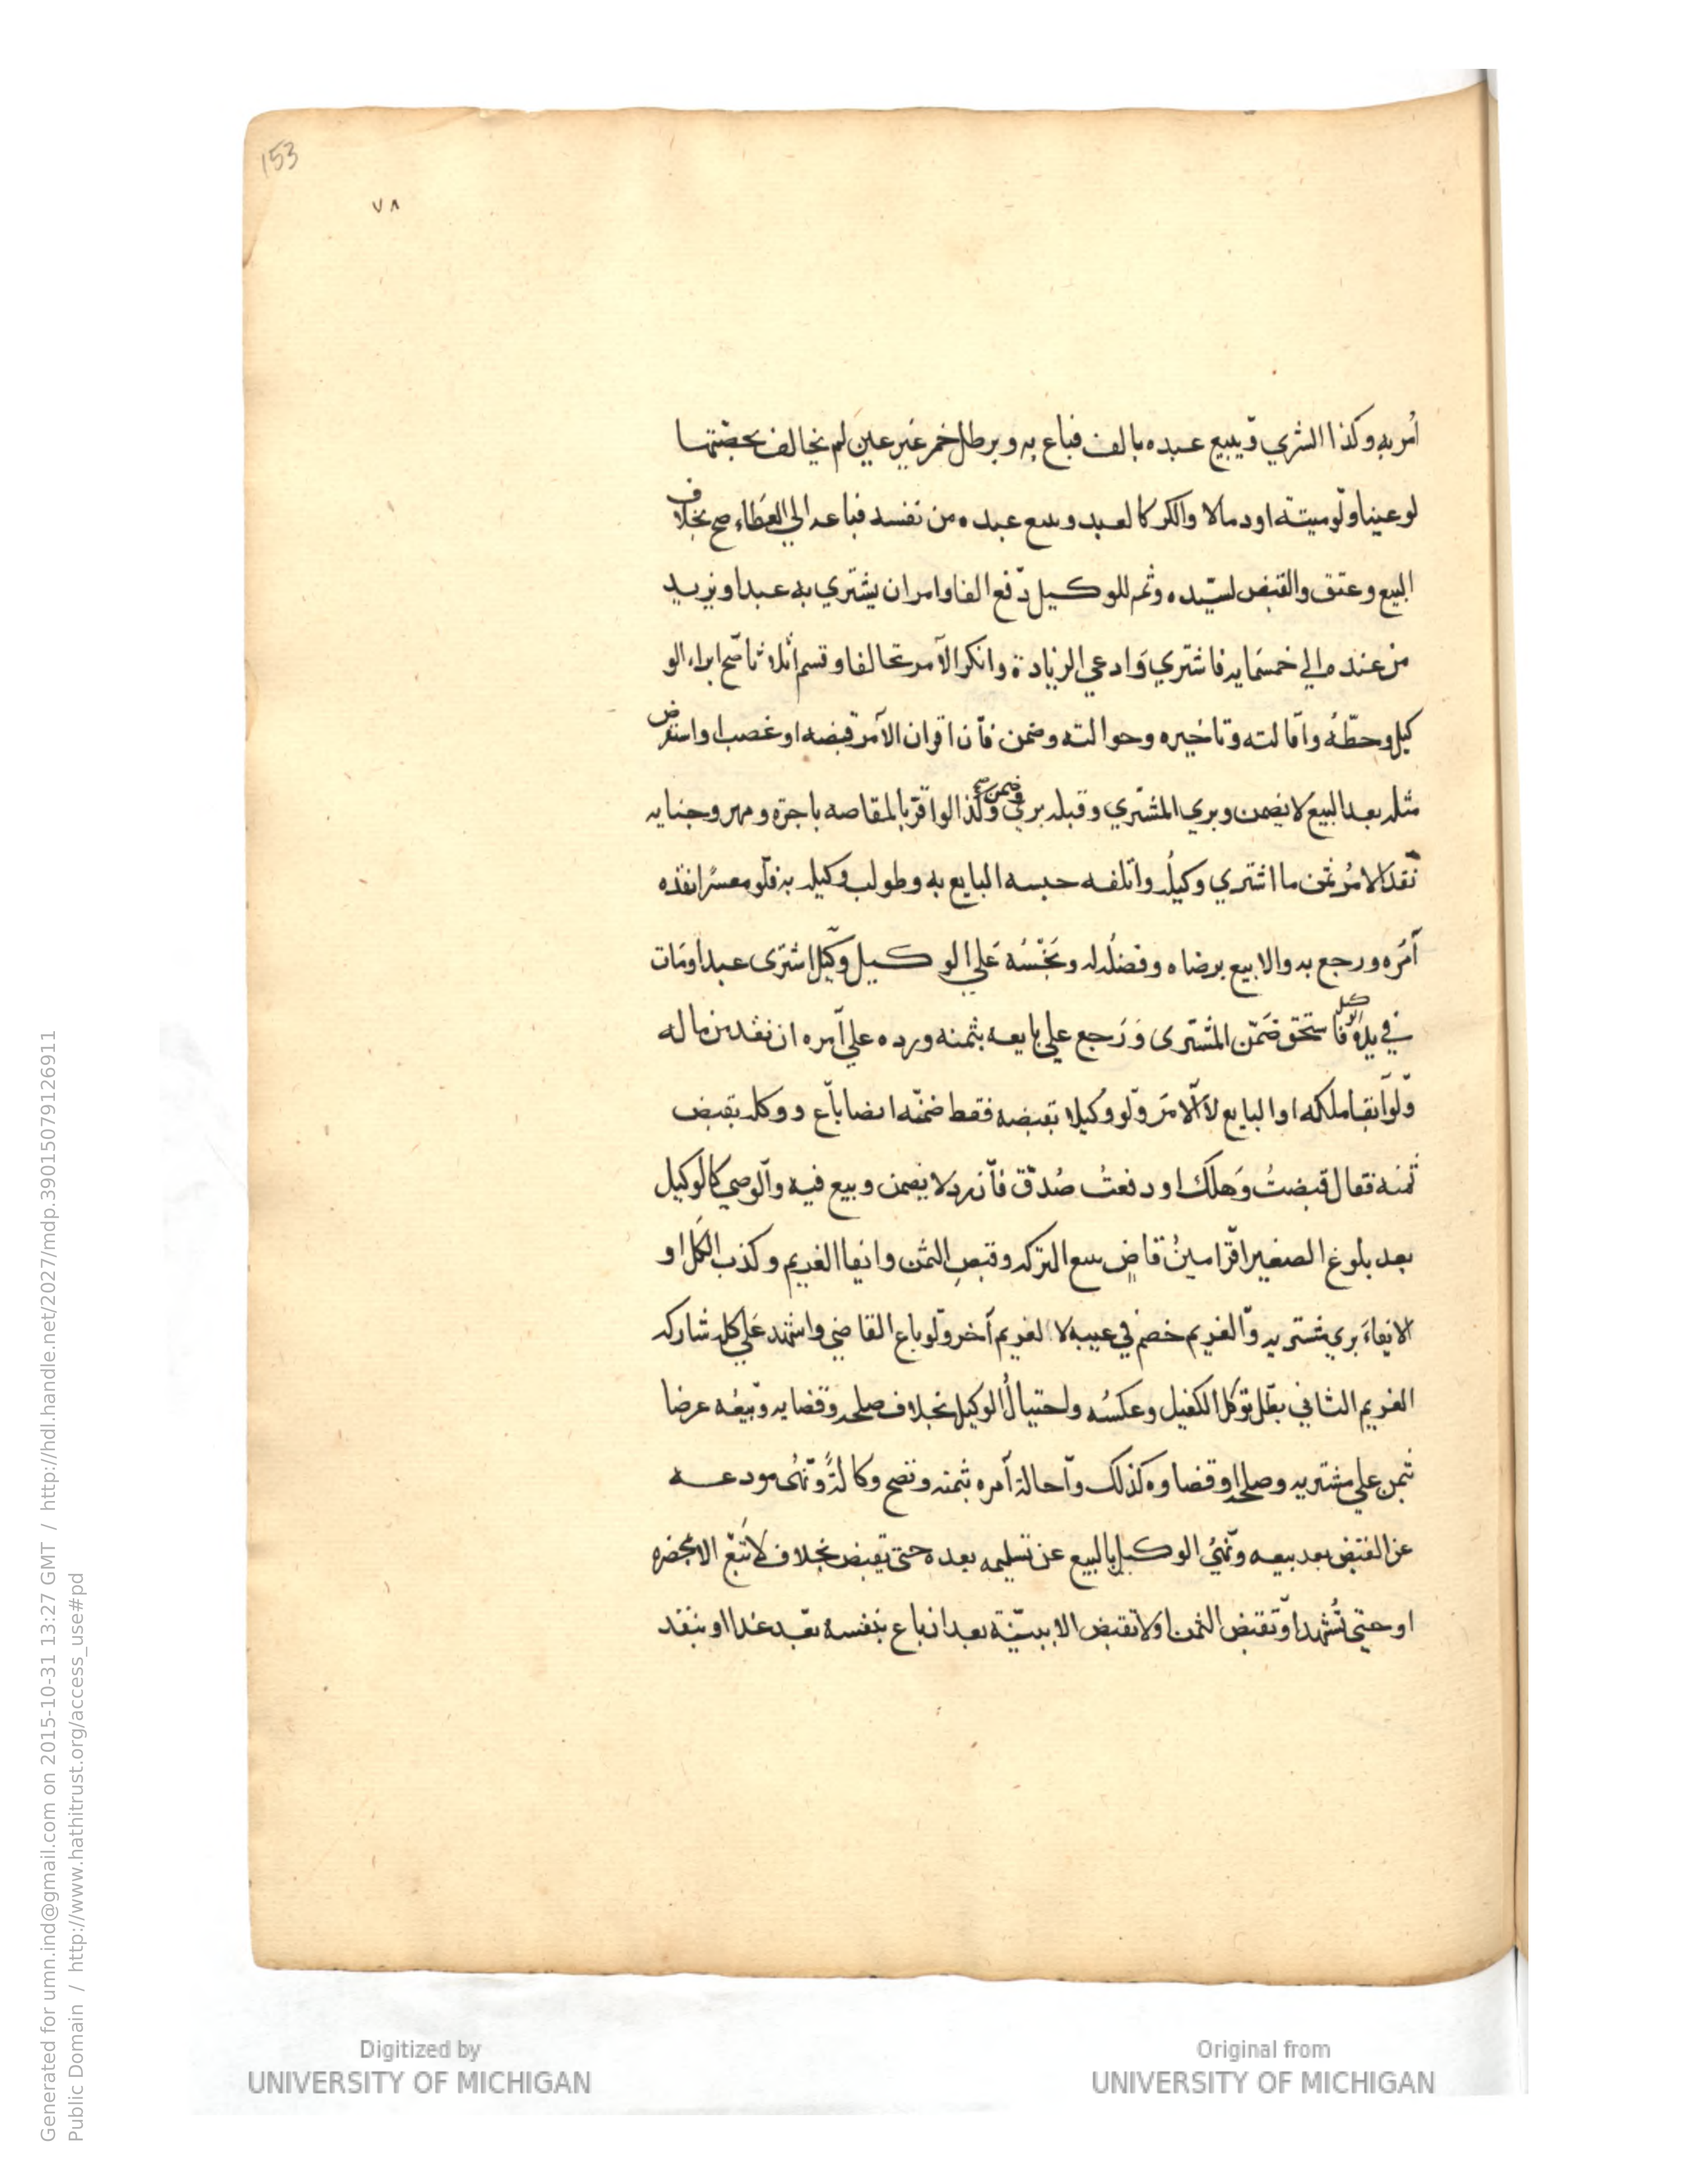 153
٧٨
أمر به وكذا الشري وببيع عبده بالف فباع به وبرطل خمر غير عين لم يخالف بحصتها
لو عينا ولو ميتة او دما لا والكر كالعبد وببيع عبده من نفسه فباعه الي العطاء صح بخلاف
البيع وعتق والقبض لسيده وثم للوكيل دفع الفا وامر ان يشتري به عبدا ويزيد
من عنده الي خمسمايه فاشتري وادعي الزيادة وانكر الآمر تحالفا وقسم اثلاثا صح ابراء الو
كيل وحطه واقالته وتاخيره وحوالته وضمن فان اقر ان الآمر قبضه او غصب او استقرض
مثله بعد البيع لا يضمن وبري المشتري وقبله بري وضمن صح وكذا لو اقر بالمقاصه باجرة ومهر وجنايه
نقد الامر ثمن ما اشتري وكيله واتلفه حبسه البايع به وطولب وكيله به فلو معسرا نقده
آمره ورجع به والا بيع برضاه وفضله له وبخسه علي الوكيل وكيل اشترى عبدا ومات
في يد الوكيل فاستحق ضمن المشترى ورجع علي بايعه بثمنه ورده علي آمره ان نقد من ماله
ولو ابقا ملكه او البايع لا الآمر ولو وكيلا بقبضه فقط ضمنه ايضا باع ووكله بقبض
ثمنه فقال قبضت وهلك او دفعت صدق فان رد لا يضمن وبيع فيه والوصي كالوكيل
بعد بلوغ الصغير اقر امين قاض ببيع التركه وقبض الثمن وايفا الغريم وكذب الكل او
الايفاء بري مشتريه والغريم خصم في عيبه لا لغريم آخر ولو باع القاضي واشهد علي كله شاركه
الغريم الثاني بطل توكل الكفيل وعكسه واحتيال الوكيل بخلاف صلحه وقضايه وبيعه عرضا
ثمن علي مشتريه وصلحا وقضاوه كذلك واحالة آمره بثمنه وتصح وكالة ونهى مودعه
عن القبض بعد بيعه ونهي الوكيل بالبيع عن تسليمه بعده حتى يقبض بخلاف لا تبع الا بمحضره
او حتى تشهد او تقبض الثمن او لا تقبض الا ببينة بعد ان باع بنفسه بعبد غدا او ينقد
Digitized by
UNIVERSITY OF MICHIGAN
Original from
UNIVERSITY OF MICHIGAN
Generated for umn.ind@gmail.com on 2015-10-31 13:27 GMT / http://hdl.handle.net/2027/mdp.39015079126911
Public Domain / http://www.hathitrust.org/access_use#pd